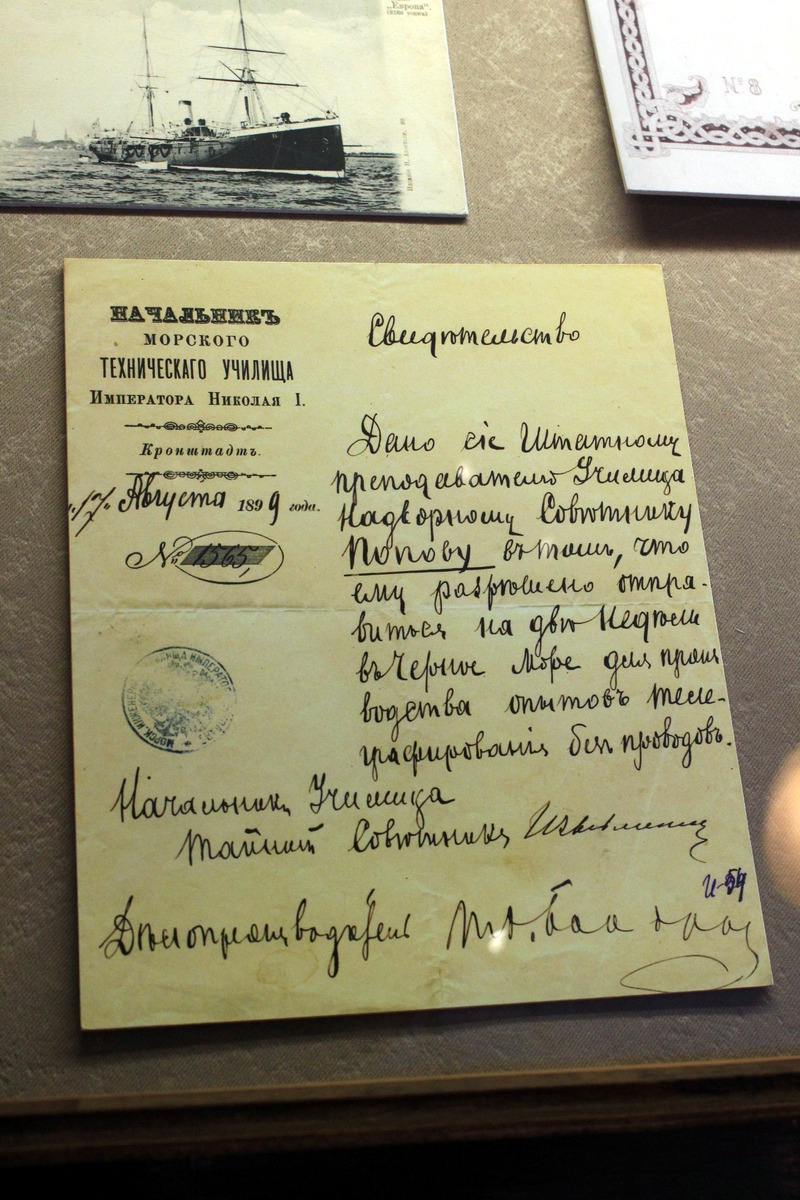 „Европа“.
№ 8
НАЧАЛЬНИКЪ
МОРСКОГО
ТЕХНИЧЕСКАГО УЧИЛИЩА
ИМПЕРАТОРА НИКОЛАЯ I.
Кронштадтъ.
„17“ Августа 1899 года.
№ 1565,
Свидѣтельство
Дано сіе Штатному
преподавателю Училища
Надворному Совѣтнику
Попову въ томъ, что
ему разрѣшено отпра-
виться на двѣ недѣли
въ Черное море для произ
водства опытовъ теле-
графированія безъ проводовъ.
Начальникъ Училища
Тайный Совѣтникъ
и-54
Дѣлопроизводитель